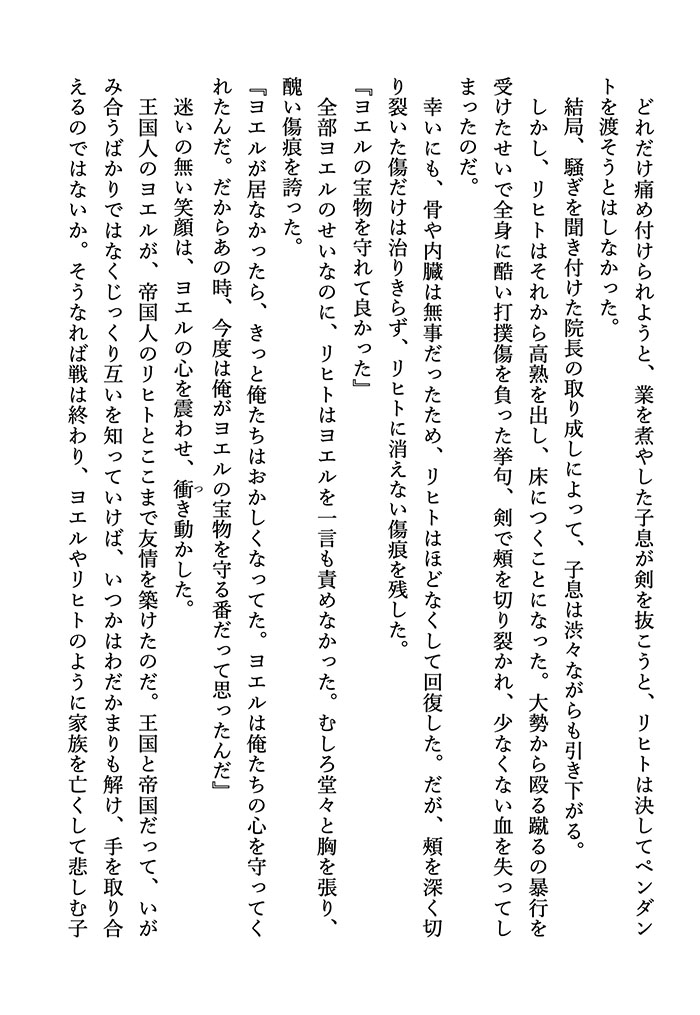 どれだけ痛め付けられようと、業を煮やした子息が剣を抜こうと、リヒトは決してペンダン
トを渡そうとはしなかった。
　結局、騒ぎを聞き付けた院長の取り成しによって、子息は渋々ながらも引き下がる。
　しかし、リヒトはそれから高熱を出し、床につくことになった。大勢から殴る蹴るの暴行を
受けたせいで全身に酷い打撲傷を負った挙句、剣で頬を切り裂かれ、少なくない血を失ってし
まったのだ。
　幸いにも、骨や内臓は無事だったため、リヒトはほどなくして回復した。だが、頬を深く切
り裂いた傷だけは治りきらず、リヒトに消えない傷痕を残した。
『ヨエルの宝物を守れて良かった』
　全部ヨエルのせいなのに、リヒトはヨエルを一言も責めなかった。むしろ堂々と胸を張り、
醜い傷痕を誇った。
『ヨエルが居なかったら、きっと俺たちはおかしくなってた。ヨエルは俺たちの心を守ってく
れたんだ。だからあの時、今度は俺がヨエルの宝物を守る番だって思ったんだ』
　迷いの無い笑顔は、ヨエルの心を震わせ、衝つき動かした。
　王国人のヨエルが、帝国人のリヒトとここまで友情を築けたのだ。王国と帝国だって、いが
み合うばかりではなくじっくり互いを知っていけば、いつかはわだかまりも解け、手を取り合
えるのではないか。そうなれば戦は終わり、ヨエルやリヒトのように家族を亡くして悲しむ子